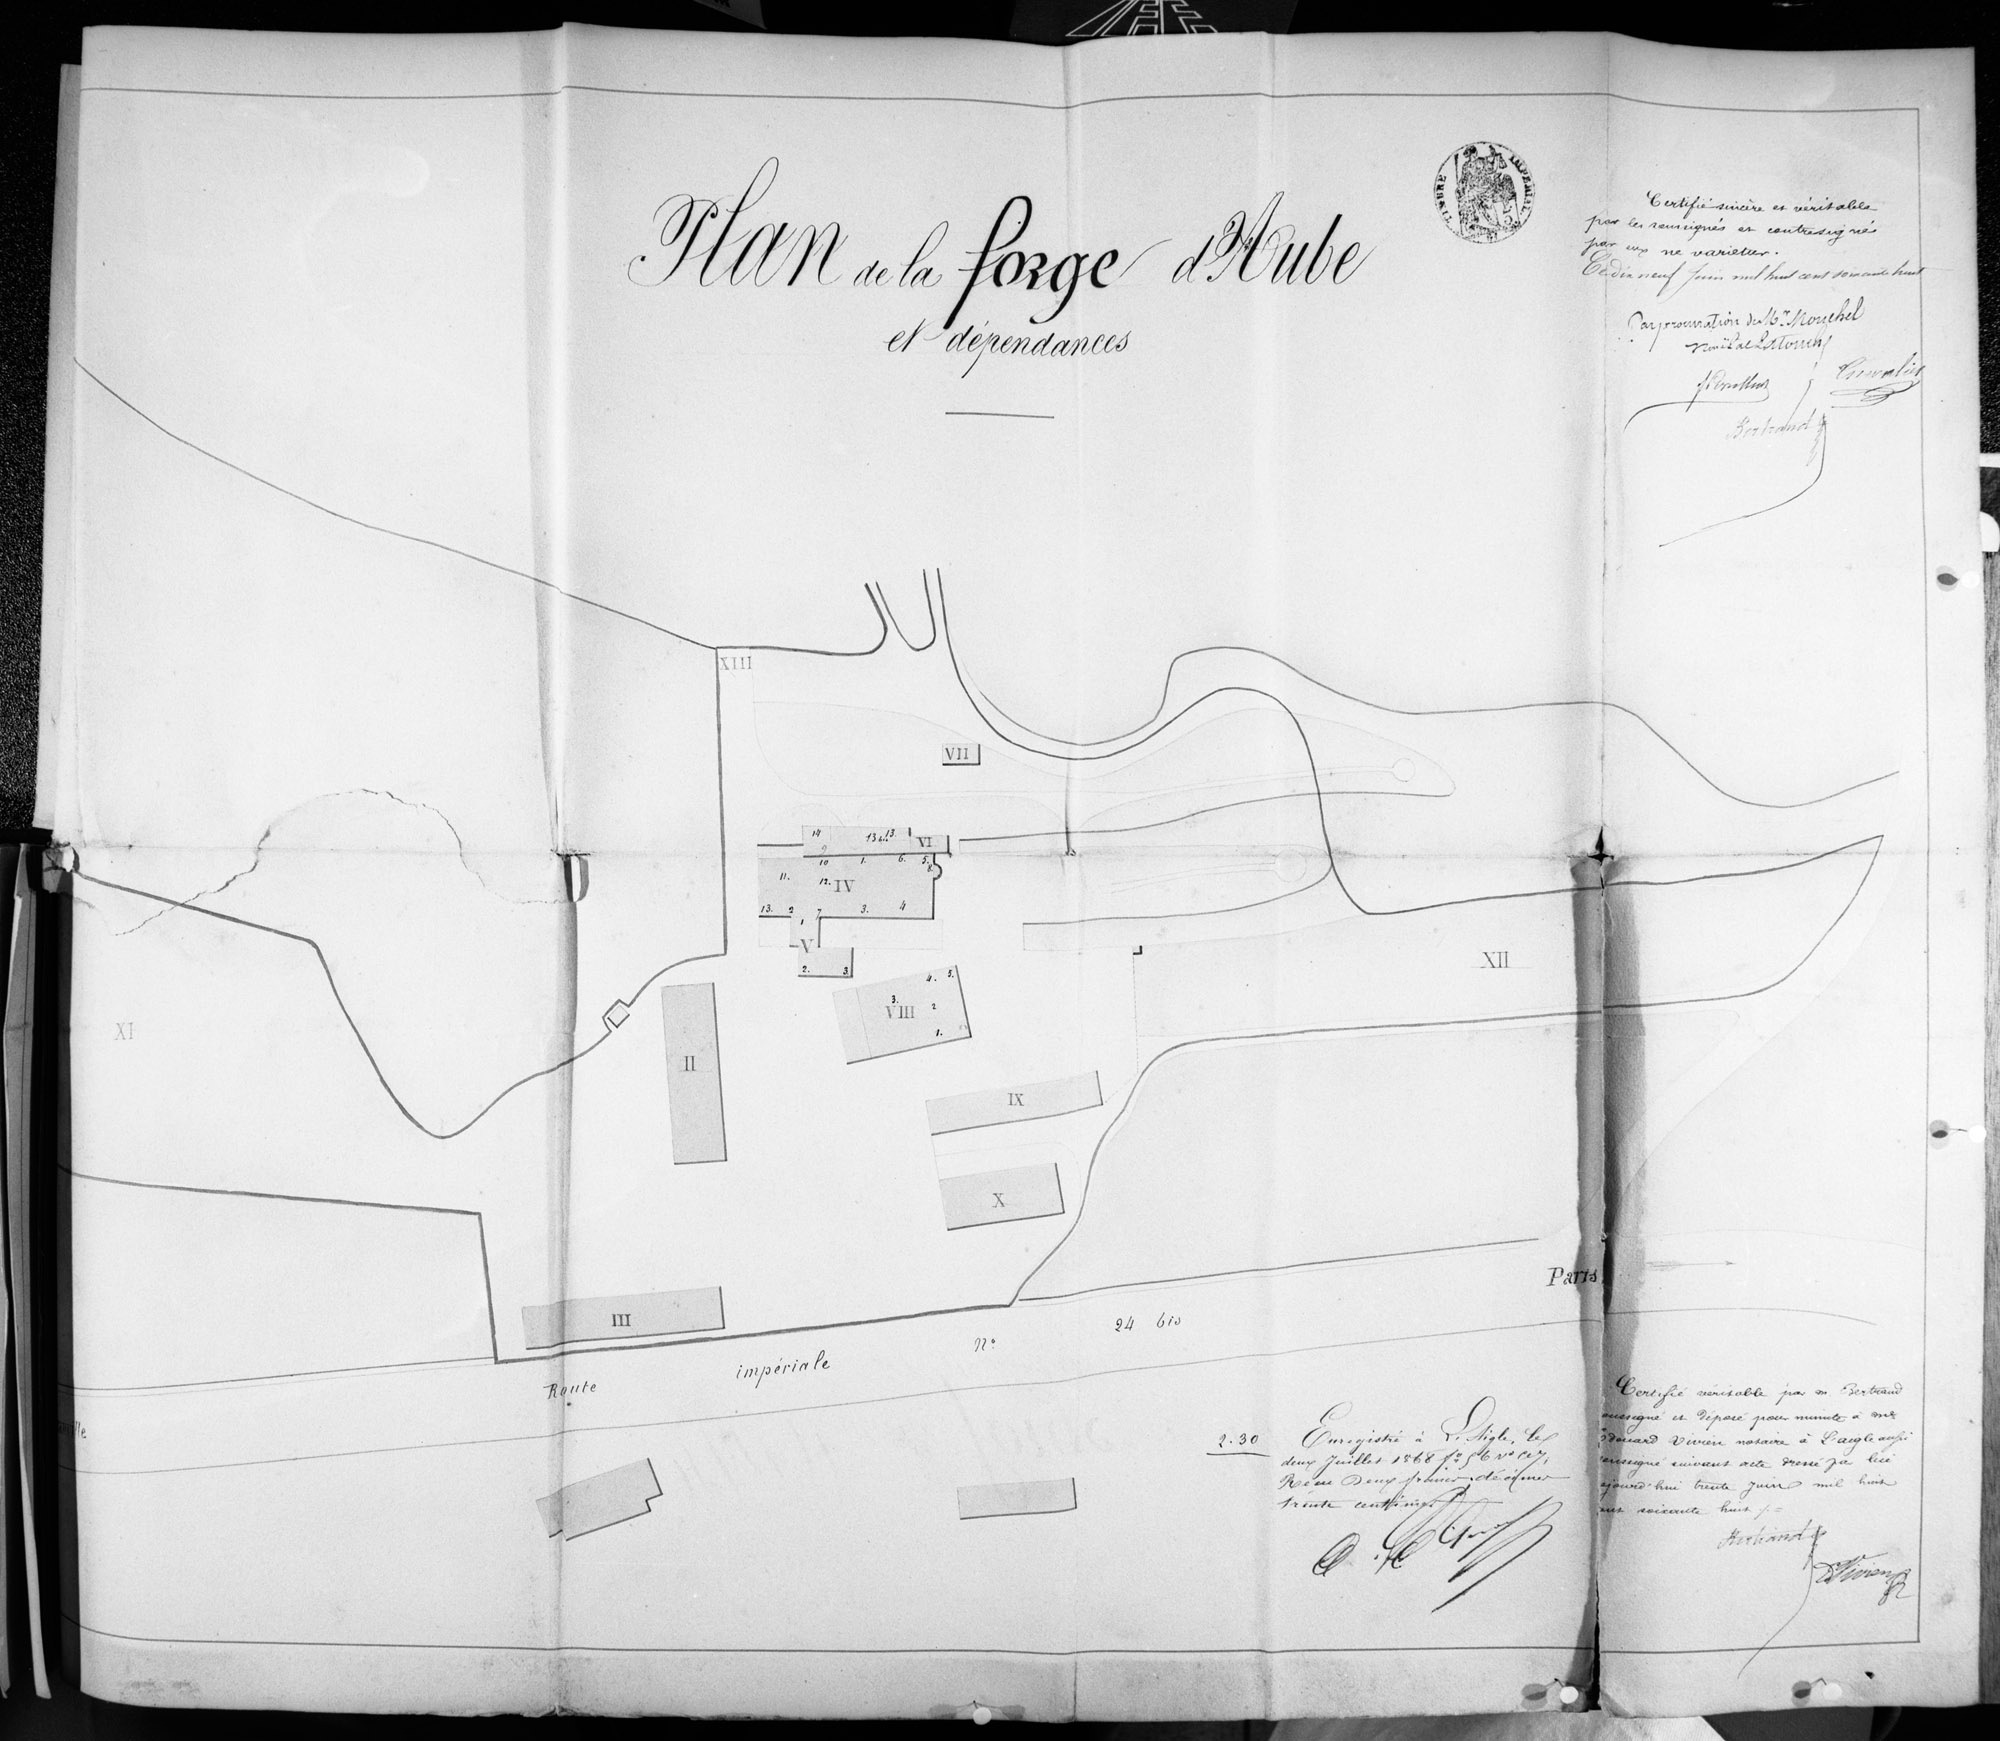 Plan de la forge d'Aube
et dépendances
TIMBRE IMPERIAL
Certifié sincère et véritable
par les soussignés et contresigné
par eux ne varietur.
Ce dix neuf Juin mil huit cent soixante huit
Par procuration de Mr Mouchel
Chevalier
Bertrand
XIII
VII
14
13 bis
13.
VI
9
10
1.
6.
5.
8.
11.
12.
IV
13.
2
7
3.
4
1
V
2.
3.
XII
4.
5.
3.
VIII
2
1.
XI
II
IX
X
III
Paris
Route impériale N° 24 bis
2.30
Enregistré à L'Aigle, le
deux Juillet 1868 f°
Reçu deux francs, décimes
trente centimes
Certifié véritable par m Bertrand
soussigné et déposé pour minute à me
Edouard Vivien notaire à L'aigle aussi
soussigné suivant acte dressé par lui
aujourd'hui trente Juin mil huit
cent soixante huit
Bertrand
Vivien